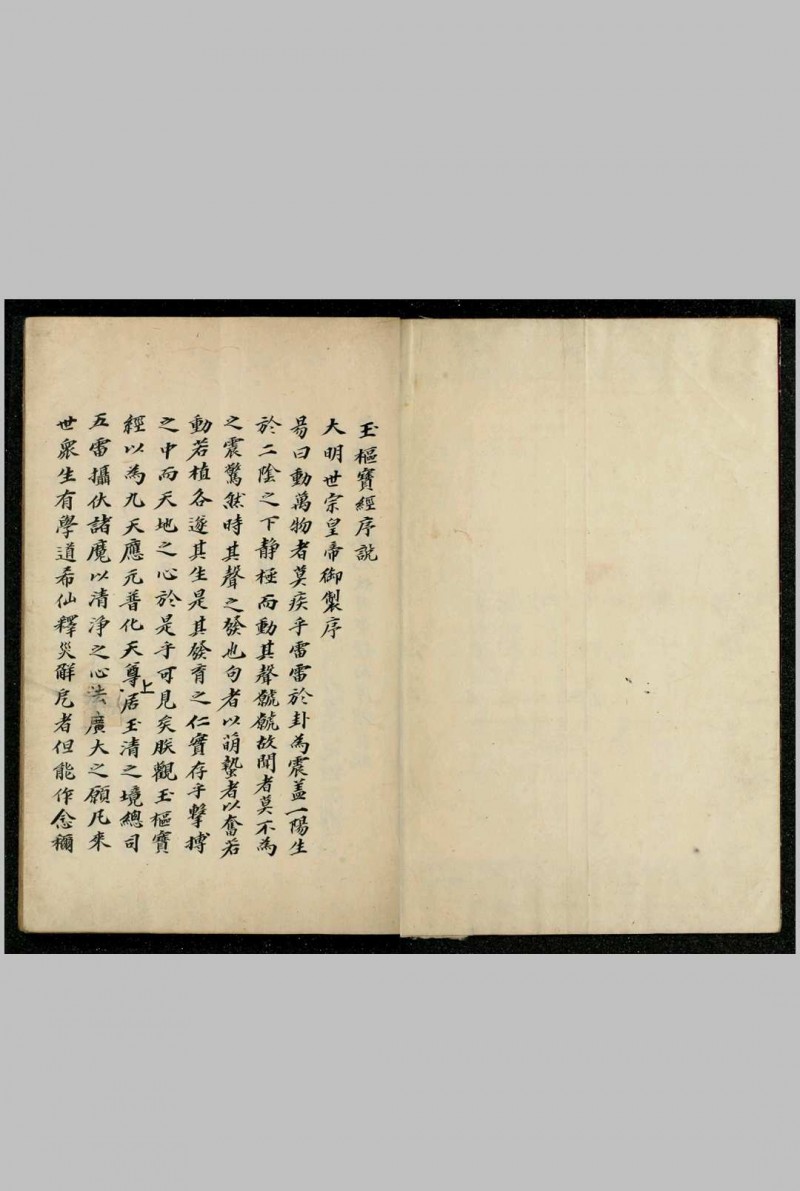 玉樞寶經序説
大明世宗皇帝御製序
易曰動萬物者莫疾乎雷雷於卦為震蓋一陽生
於二陰之下静極而動其聲虩虩故聞者莫不為
之震驚然時其聲之發也句者以萌蟄者以奮若
動若植各遂其生是其發育之仁實存乎擊搏
之中而天地之心於是乎可見矣朕觀玉樞寶
經以為九天應元普化天尊居上玉清之境總司
五雷攝伏諸魔以清淨之心法廣大之願凡来
世衆生有學道希仙釋災解厄者但能作念稱